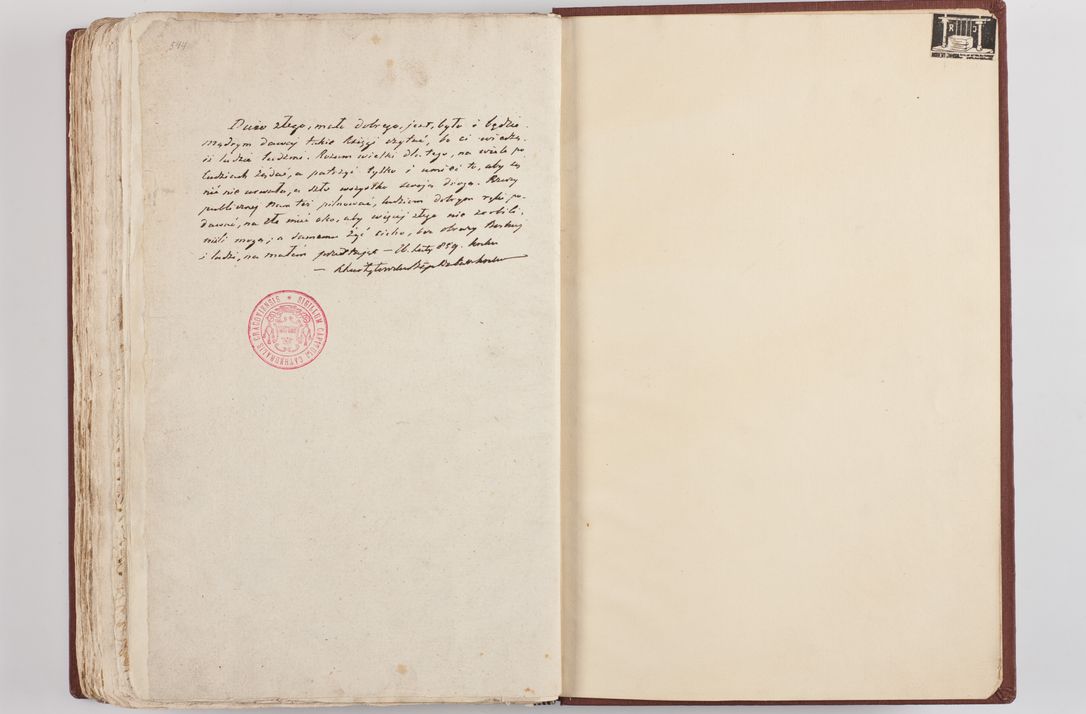 544
Dużo złego, mało dobrego, jest, było i będzie.
mądrym dawaj takie księgi czytać, bo ci wiedzą
iż ludzie ludźmi. Rozum wielki dla tego, na wiele po
ludziach żądać, a patrzyć tylko i umieć to, aby się
nic nie urwało, a szło wszystko swoją drogą. Rzeczy
publicznej nam też pilnować, ludziom dobrym rękę po-
dawać, na złe mieć oko, aby więcej złego nie zrobili,
niźli mogą, a samemu żyć cicho, bez obrazy Boskiej
i ludzi, na małém – 16. Luty 859. roku
SIGILLUM CAPITULI CATHEDRALIS CRACOVIENSIS
R J